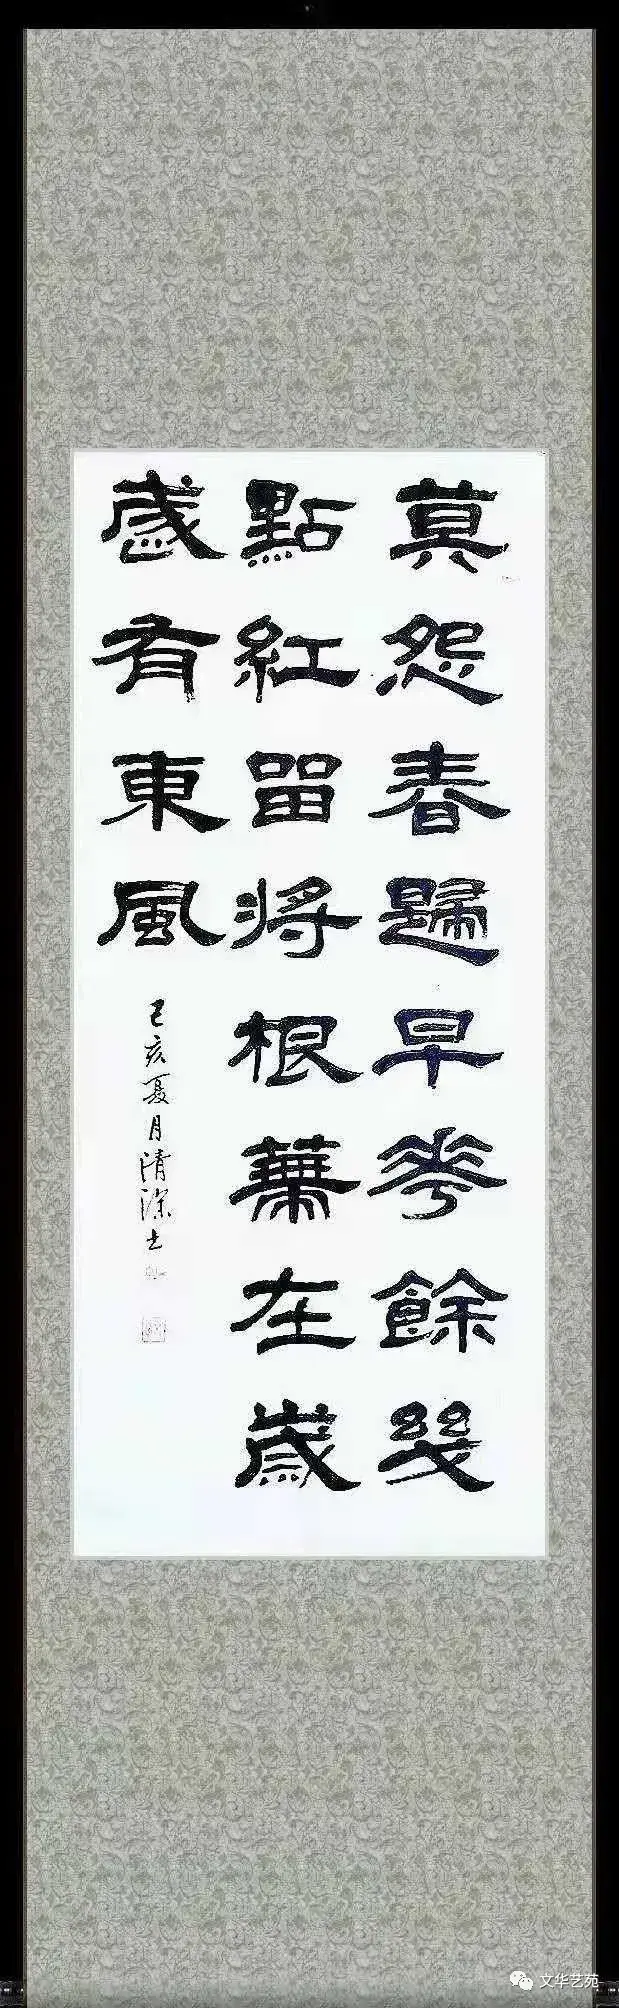 莫怨春歸早花餘幾
點紅留將根蔕在歲
歲有東風
己亥夏月清深书
文华艺苑